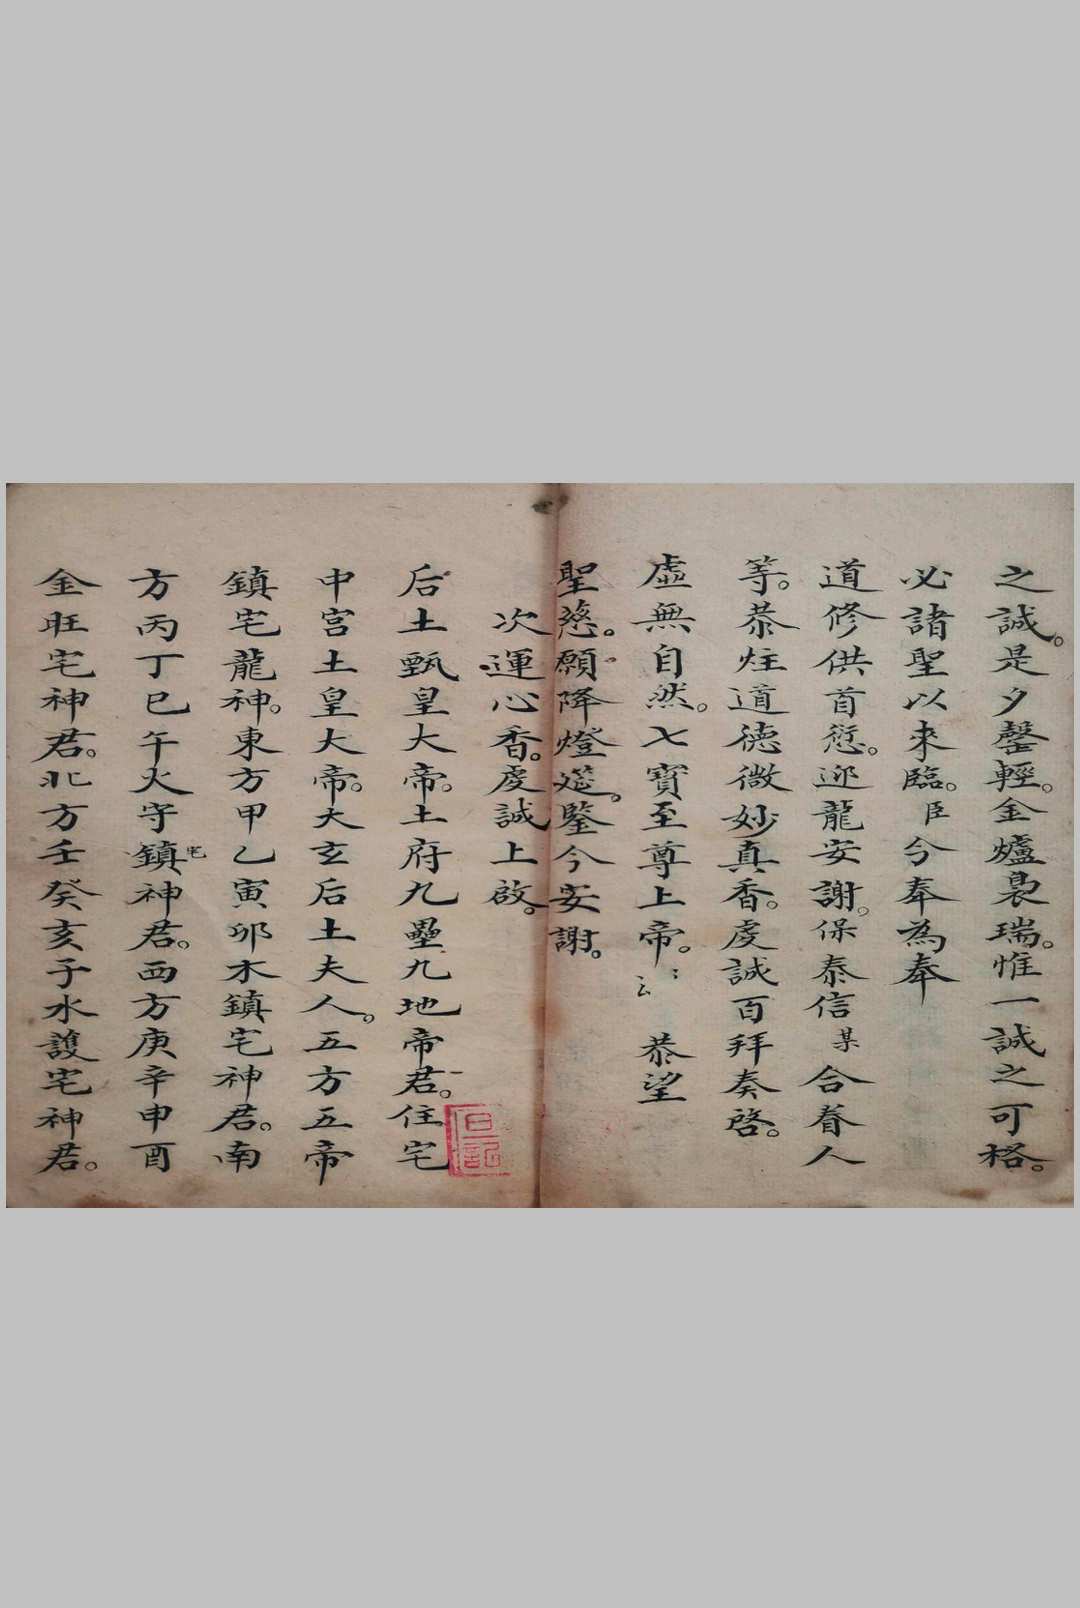 之誠。是夕罄輕。金爐裊瑞。惟一誠之可格。
必諸聖以來臨。臣今奉為奉
道修供首愆。迎龍安謝。保泰信某合眷人
等。恭炷道德微妙真香。虔誠百拜奏啓。
虛無自然。七寶至尊上帝。云 恭望
聖慈。願降燈筵。鑒今安謝。
次運心香。虔誠上啟。
后土甄皇大帝。土府九壘九地帝君。住宅
中宮土皇大帝。大玄后土夫人。五方五帝
鎮宅龍神。東方甲乙寅卯木鎮宅神君。南
方丙丁巳午火守鎮宅神君。西方庚辛申酉
金旺宅神君。北方壬癸亥子水護宅神君。